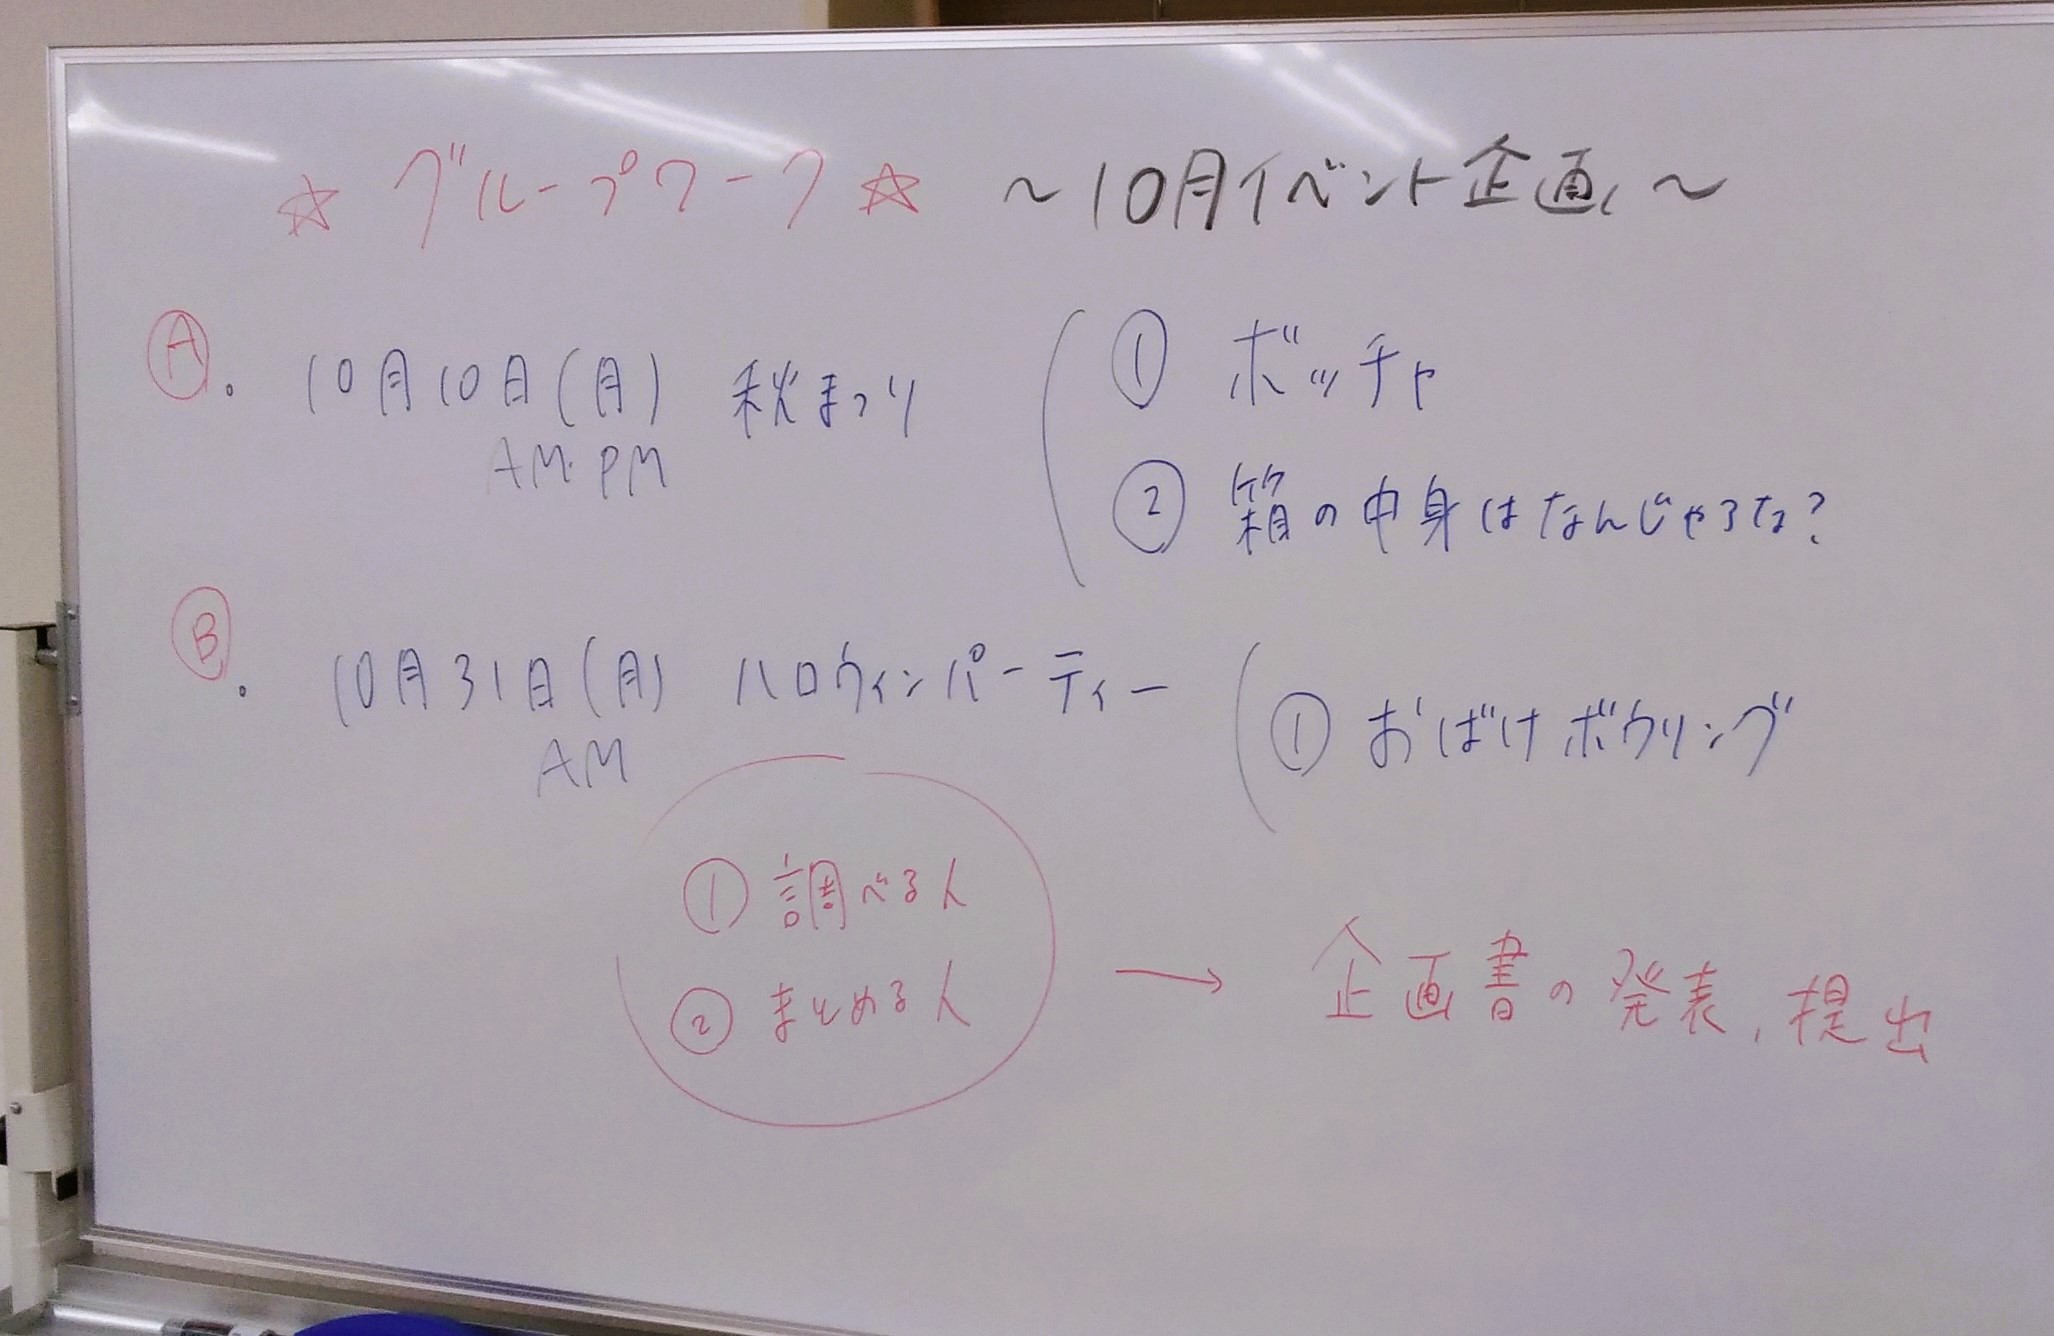 ☆グループワーク☆ ～10月イベント企画～
Ⓐ. 10月10日(月) 秋まつり
AM・PM
① ボッチャ
② 箱の中身はなんじゃろな?
Ⓑ. 10月31日(月) ハロウィンパーティー
AM
① おばけボウリング
① 調べる人
② まとめる人
→ 企画書の発表、提出